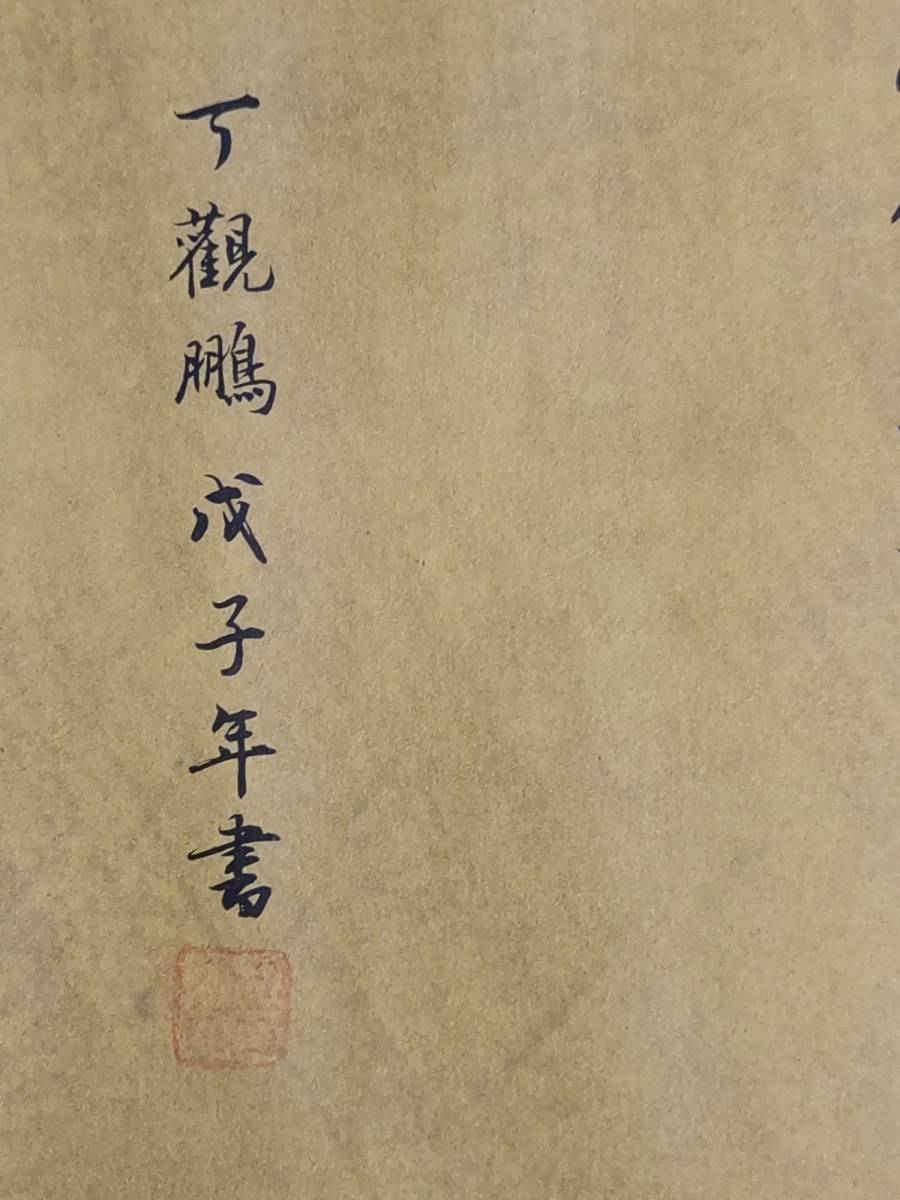 丁觀鵬 戊子年書